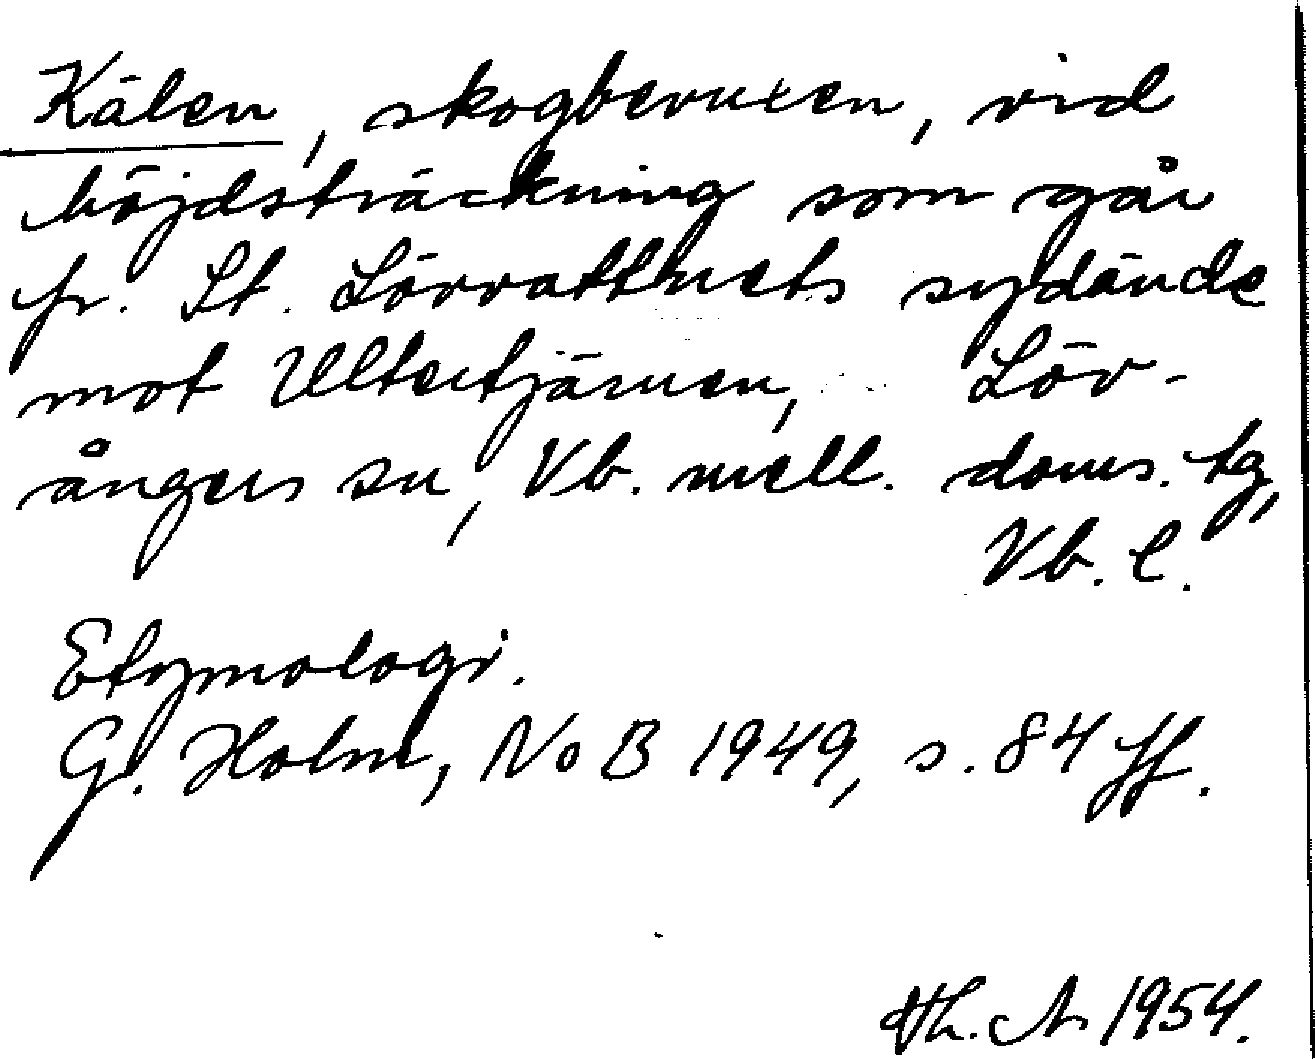 Kälen, skogbevuxen, vid
höjdsträckning som går
fr. St. Lövvattnets sydände
mot Ultertjärnen, Löv-
ångers sn, Vb. mell. doms. tg,
Vb. l.
Etymologi.
G. Holm, NoB 1949, s. 84 ff.
1954.